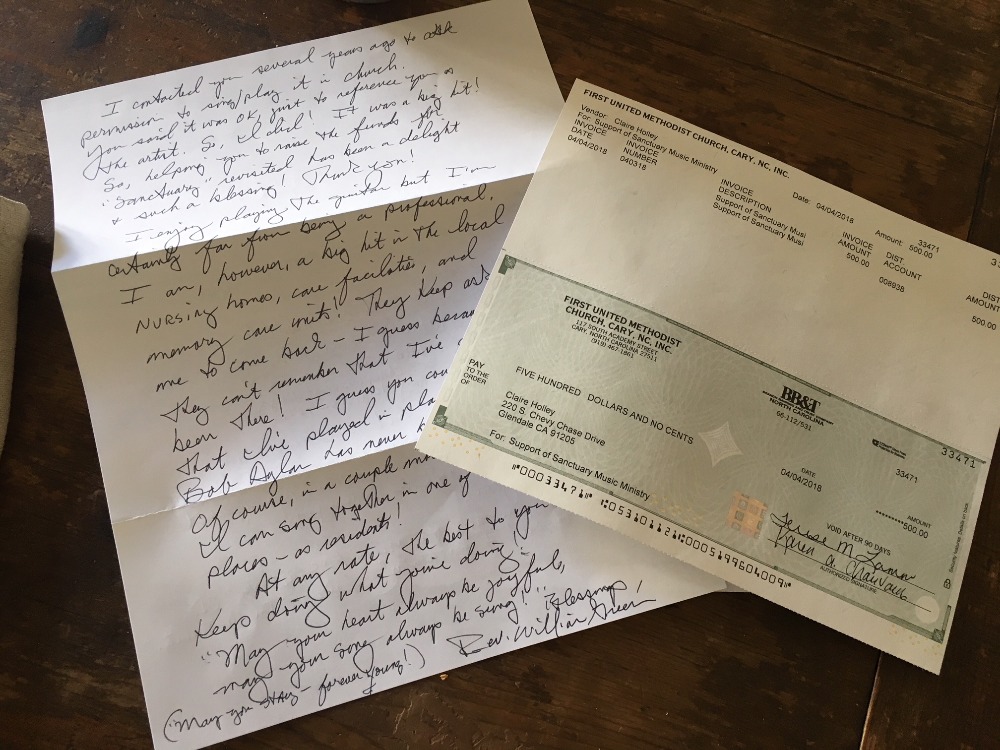 I contacted you several years ago to ask
permission to song/play it in church.
You said it was ok, just to reference you as
the artist. So, I did! It was a big hit!
So, helping you to raise the funds for
"Sanctuary" revisited has been a delight
& such a blessing! Thank you!
I enjoy playing the guitar but I'm
certainly far from being a professional.
I am, however, a big hit in the local
nursing homes, care facilities, and
memory care units! They keep
me to come back - I guess
they can't remember that I've
been there! I guess you
that I've played in
Bob Dylan has never
Of course, in a couple
I can song together in one of
places - as residents!
At any rate, the best to you
Keep doing what you're doing!
"May your heart always be joyful,
may your song always be sung!" Blessings,
Rev. William Green
(May you stay - forever young!)
FIRST UNITED METHODIST CHURCH, CARY, NC, INC.
Vendor: Claire Holley
For: Support of Sanctuary Music Ministry
Date: 04/04/2018
Amount: 500.00
33471
DATE
INVOICE NUMBER
INVOICE DESCRIPTION
INVOICE AMOUNT
DIST. ACCOUNT
DIST AMOUNT
04/04/2018
040318
Support of Sanctuary Musi
Support of Sanctuary Musi
500.00
008938
500.00
FIRST UNITED METHODIST
CHURCH, CARY, NC, INC.
117 SOUTH ACADEMY STREET
CARY, NORTH CAROLINA 27511
(919) 467-1861
BB&T
NORTH CAROLINA
66-112/531
33471
33471
PAY
TO THE
ORDER
OF
FIVE HUNDRED DOLLARS AND NO CENTS
Claire Holley
220 S. Chevy Chase Drive
Glendale CA 91205
For: Support of Sanctuary Music Ministry
DATE
04/04/2018
AMOUNT
*********500.00
VOID AFTER 90 DAYS
AUTHORIZED SIGNATURE